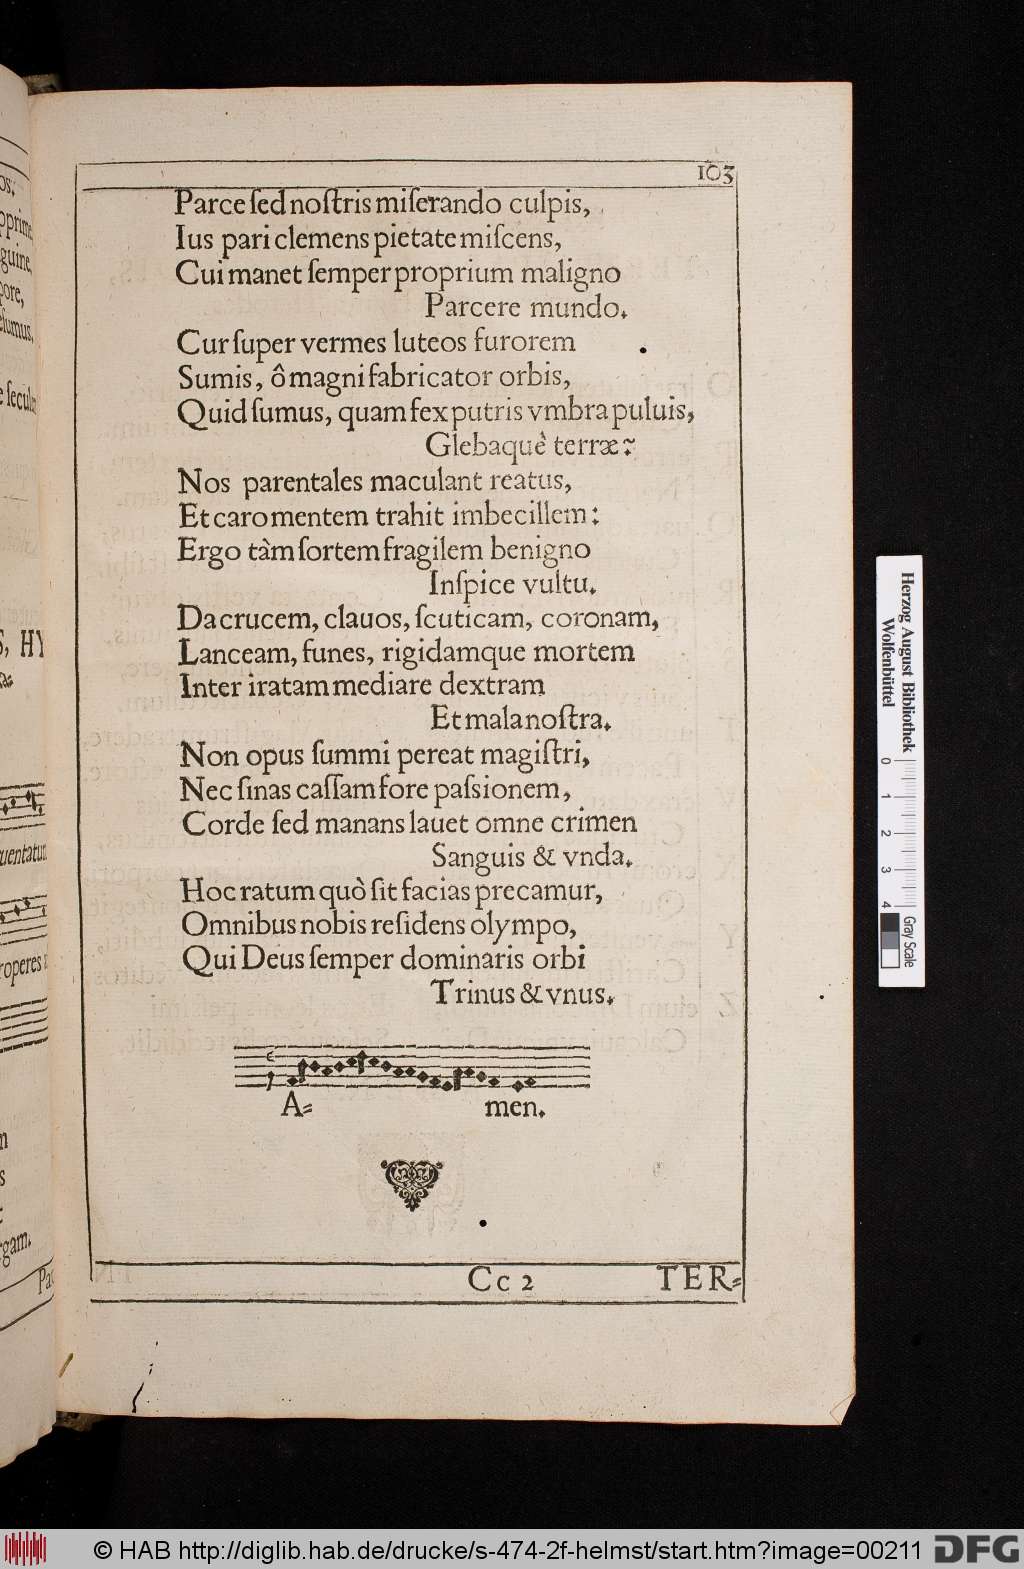 103
Parce ſed noſtris miſerando culpis,
Ius pari clemens pietate miſcens,
Cui manet ſemper proprium maligno
Parcere mundo.
Cur ſuper vermes luteos furorem
Sumis, ô magni fabricator orbis,
Quid ſumus, quam fex putris vmbra puluis,
Glebaquè terræ?
Nos parentales maculant reatus,
Et caro mentem trahit imbecillem:
Ergo tàm ſortem fragilem benigno
Inſpice vultu.
Da crucem, clauos, ſcuticam, coronam,
Lanceam, funes, rigidamque mortem
Inter iratam mediare dextram
Et mala noſtra.
Non opus ſummi pereat magiſtri,
Nec ſinas caſſam fore paſsionem,
Corde ſed manans lauet omne crimen
Sanguis & vnda.
Hoc ratum quò ſit facias precamur,
Omnibus nobis reſidens olympo,
Qui Deus ſemper dominaris orbi
Trinus & vnus.
A= men.
Cc 2 TER=
os,
guine,
pore,
ſumus,
S, HY
uentatur
roperes
gam.
Herzog August Bibliothek
Wolfenbüttel
0 1 2 3 4
Gray Scale
© HAB http://diglib.hab.de/drucke/s-474-2f-helmst/start.htm?image=00211
DFG